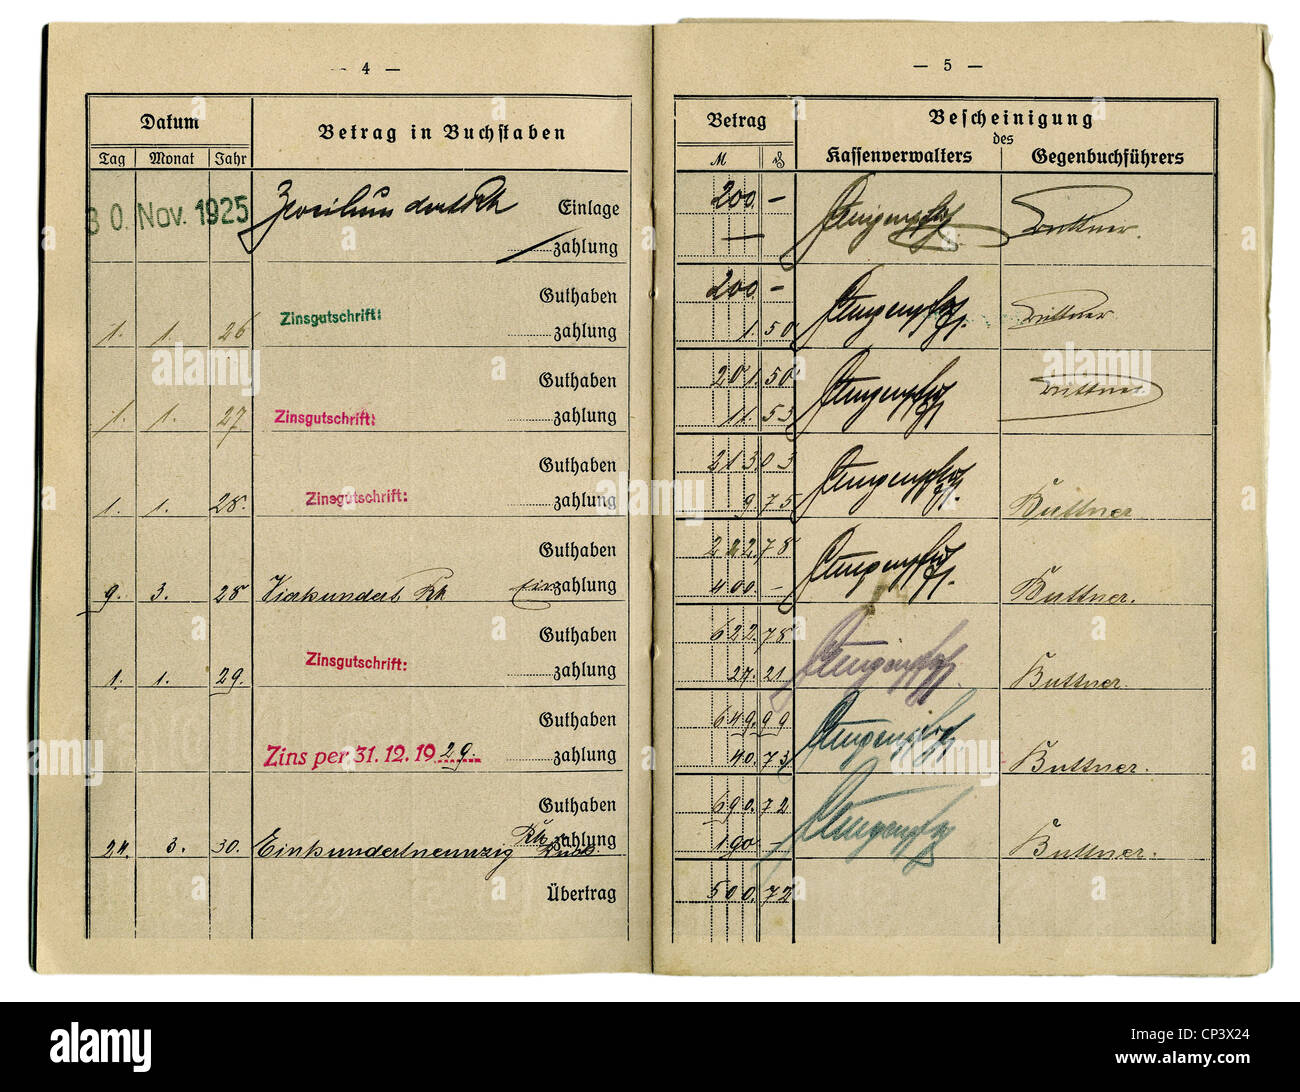 — 4 —
Datum
Betrag in Buchstaben
Tag Monat Jahr
30. Nov. 1925
Einlage
zahlung
Guthaben
1. 1. 26 Zinsgutschrift: zahlung
Guthaben
1. 1. 27 Zinsgutschrift: zahlung
Guthaben
1. 1. 28. Zinsgutschrift: zahlung
Guthaben
9. 3. 28 Vierhundert Rk Einzahlung
Guthaben
1. 1. 29. Zinsgutschrift: zahlung
Guthaben
Zins per 31. 12. 19 29. zahlung
Guthaben
24. 3. 30. Einhundertneunzig Rk Rückzahlung
Übertrag
— 5 —
Betrag
Bescheinigung
des
M ₰ Kassenverwalters Gegenbuchführers
200. –
— Büttner.
200. –
1. 50 Büttner
201. 50
11. 53 Büttner
213 03
9 75 Büttner
222 78
400. – Büttner.
622. 78
27. 21 Büttner.
649. 99
40. 73 Büttner.
690. 72
190 – Büttner.
500. 72
alamy
Image ID: CP3X24
www.alamy.com